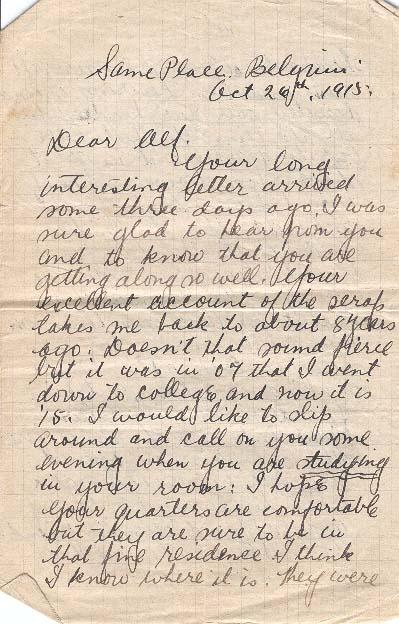 Same Place. Belgium.
Oct 26th, 1915.
Dear Alf.
Your long
interesting letter arrived
some three days ago, I was
sure glad to hear from you
and to know that you are
getting along so well. Your
excellent account of the scrap
takes me back to about 8 years
ago. Doesn't that sound fierce
but it was in 07 that I went
down to college, and now it is
'15. I would like to slip
around and call on you some
evening when you are studying
in your room. I hope
your quarters are comfortable
but they are sure to be in
that fine residence I think
I know where it is. They were